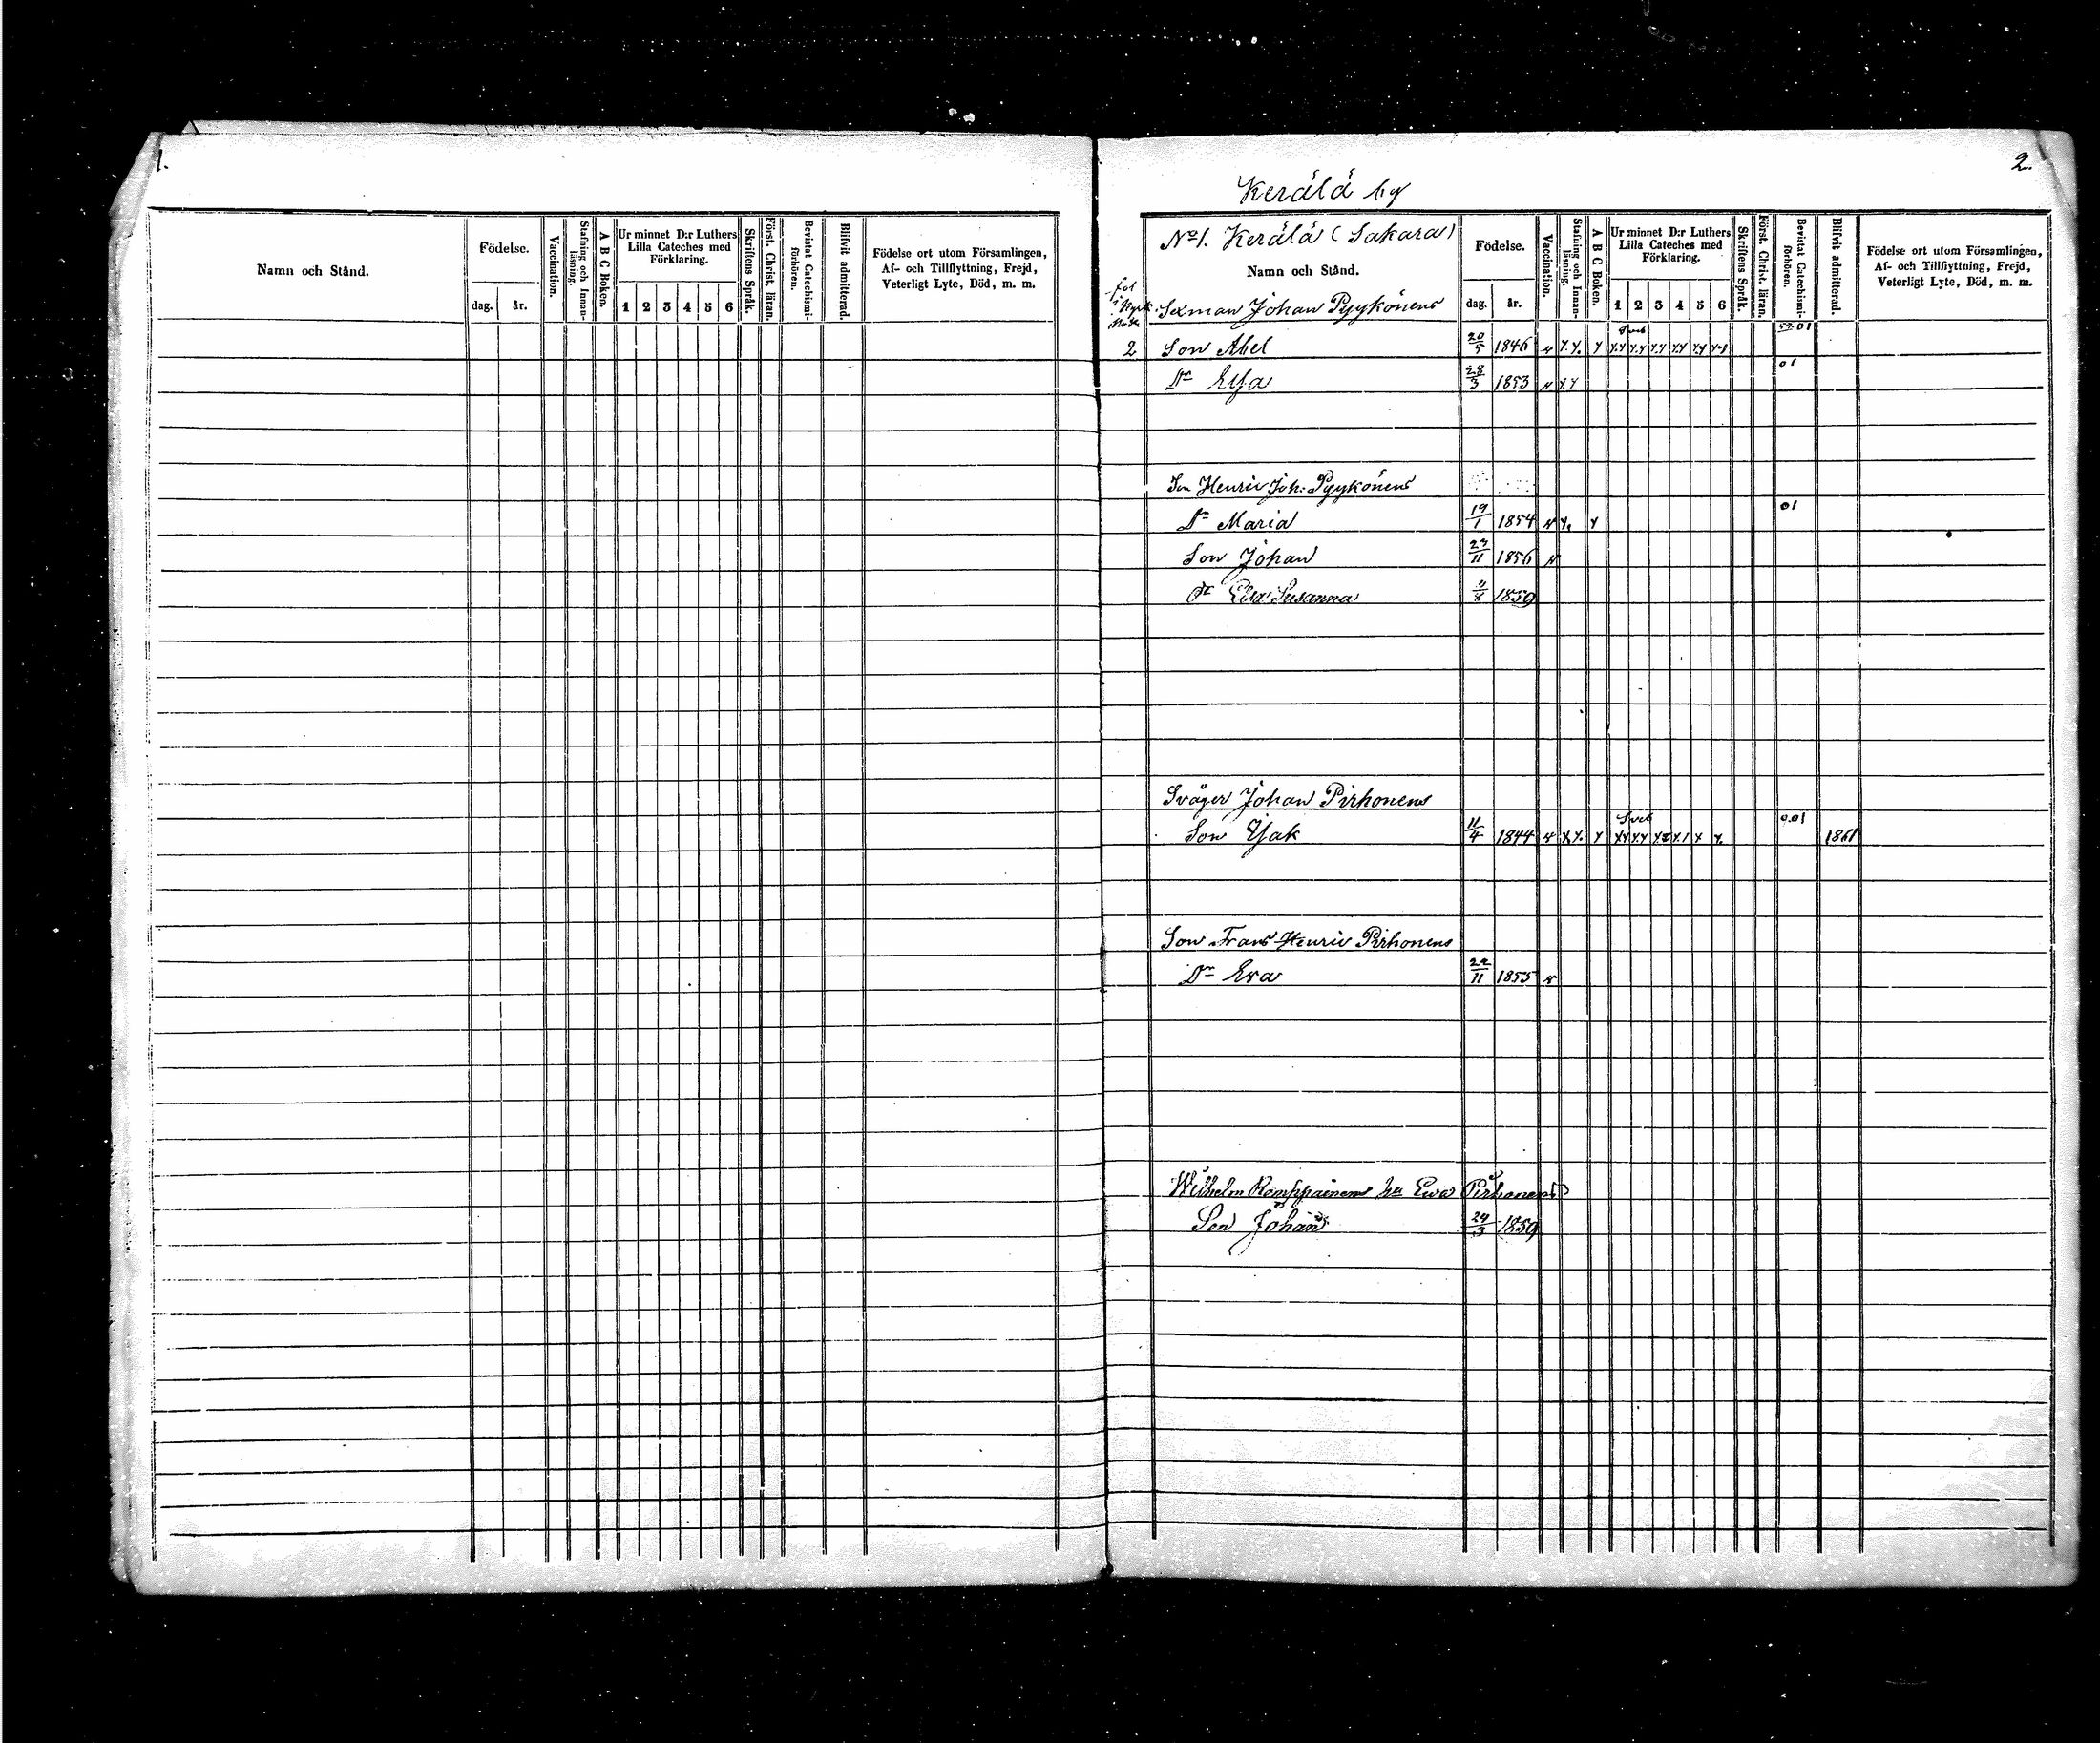 1.
Namn och Stånd.
Födelse.
dag. år.
Vaccination.
Stafning och Innan-
läsning.
A B C Boken.
Ur minnet D:r Luthers
Lilla Cateches med
Förklaring.
1 2 3 4 5 6
Skriftens Språk.
Först. Christ. läran.
Bevistat Catechismi-
förhören.
Blifvit admitterad.
Födelse ort utom Församlingen,
Af- och Tillflyttning, Frejd,
Veterligt Lyte, Död, m. m.
2.
Kerälä by
No 1. Kerälä (Sakara)
Namn och Stånd.
Födelse.
dag. år.
Vaccination.
Stafning och Innan-
läsning.
A B C Boken.
Ur minnet D:r Luthers
Lilla Cateches med
Förklaring.
1 2 3 4 5 6
Skriftens Språk.
Först. Christ. läran.
Bevistat Catechismi-
förhören.
Blifvit admitterad.
Födelse ort utom Församlingen,
Af- och Tillflyttning, Frejd,
Veterligt Lyte, Död, m. m.
Sexman Johan Pyykönens
2 Son Abel 20/5 1846
Dr 28/3 1853 01
Son Henric Joh: Pyykönens
Dr Maria 19/1 1854 01
Son Johan 23/11 1856
Dr Eva Susanna 11/8 1859
Svåger Johan Pirhonens
Son Isak 11/4 1844 1861
Son Frans Henric Pirhonens
Dr Eva 22/11 1855
Wilhelm Romppainens hu Eva Pirhonens
Son Johan 24/3 1859